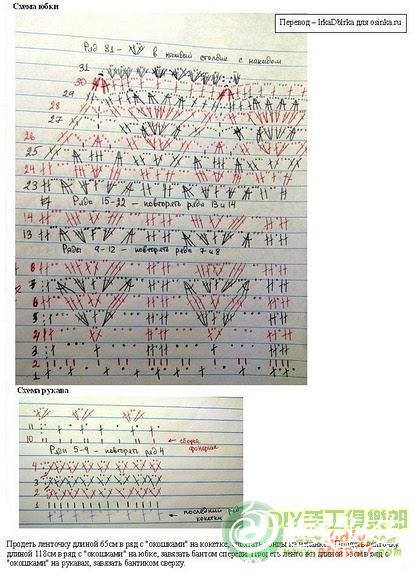 Схема юбки
Перевод – IrkaDЫrka для osinka.ru
Ряд 31 - в каждый столбик с накидом
31
30
29
28
27
26
25
24
23
Ряды 15-22 - повторять ряда 13 и 14
14
13
Ряды 9-12 - повторять ряда 7 и 8
8
7
6
5
4
3
2
1
Схема рукава
11
10
сборка фонарика
Ряды 5-9 - повторять ряд 4
4
3
2
1
последний ряд кокетки
Продеть ленточку длиной 65см в ряд с "окошками" на кокетке,
длиной 118см в ряд с "окошками" на юбке, завязать бантом спереди.
"окошками" на рукавах, завязать бантиком сверху.